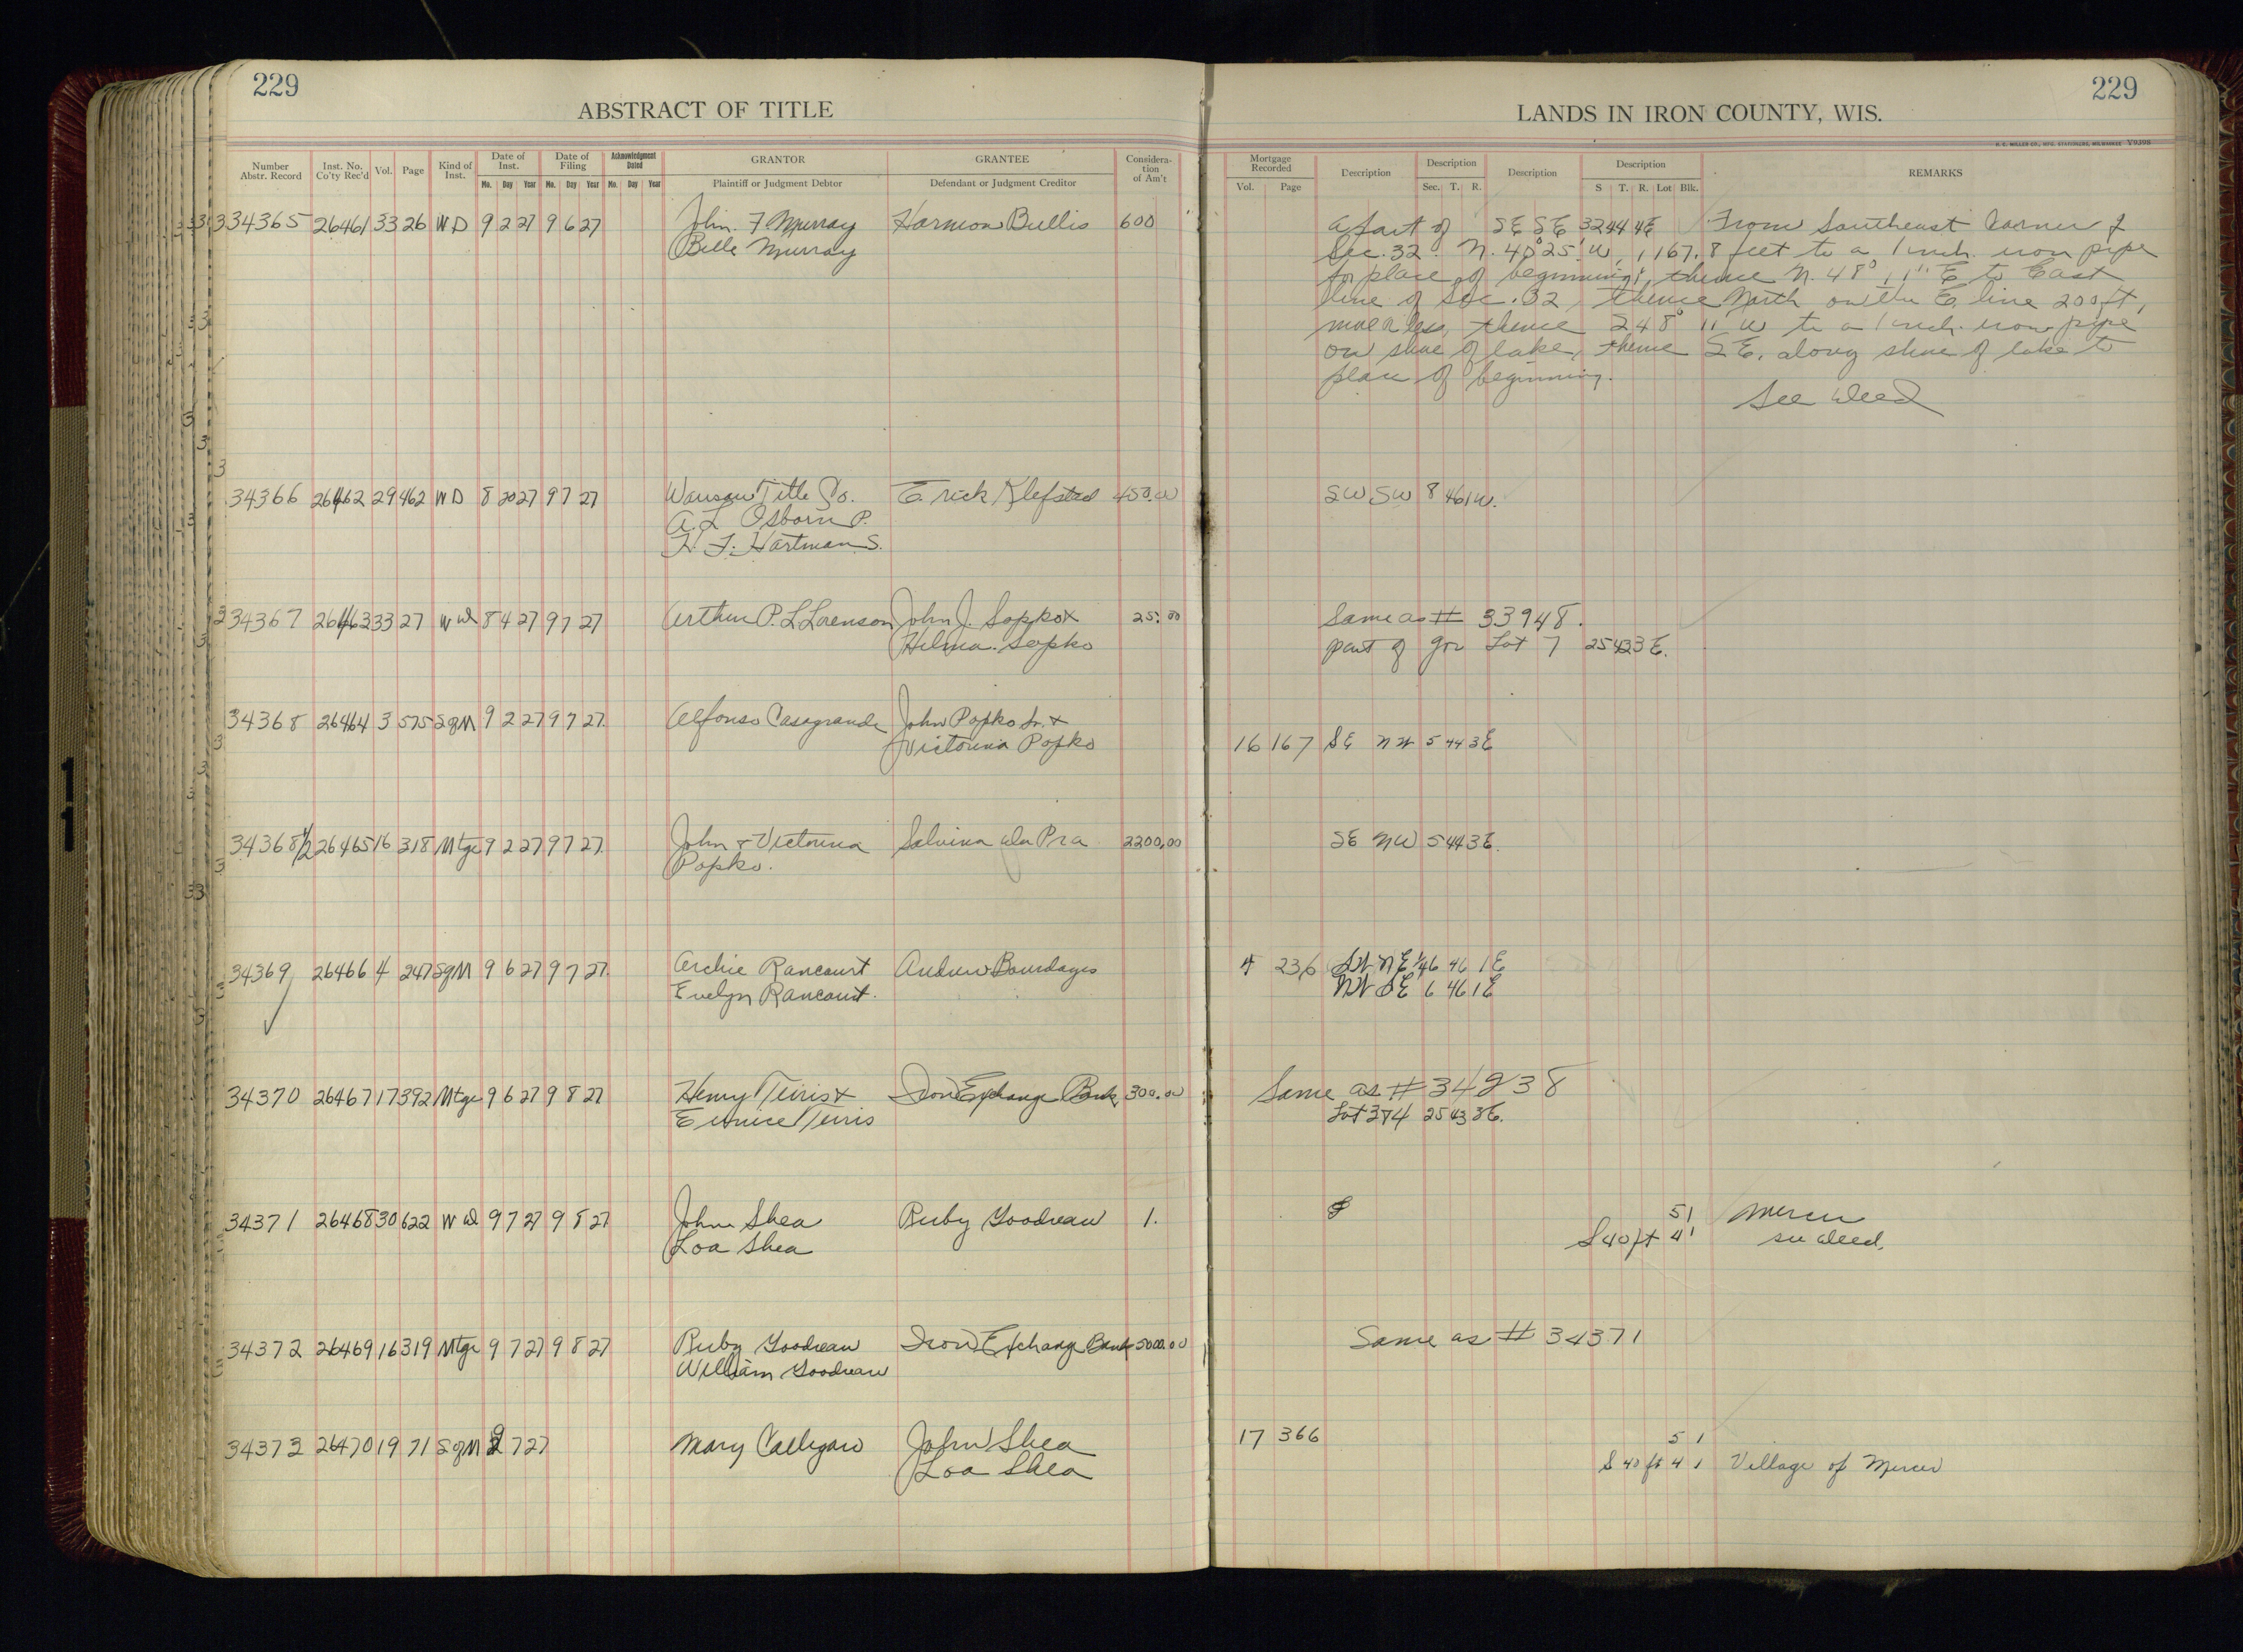 229
ABSTRACT OF TITLE
Number Abstr. Record
Inst. No. Co'ty Rec'd
Vol.
Page
Kind of Inst.
Date of Inst.
Mo. Day Year
Date of Filing
Mo. Day Year
Acknowledgment Dated
Mo. Day Year
GRANTOR
Plaintiff or Judgment Debtor
GRANTEE
Defendant or Judgment Creditor
Considera-tion of Am't
34365 26461 33 26 W D 9 2 27 9 6 27 John F Murray Harmon Bullis 600
Belle Murray
34366 26462 29 462 W D 8 20 27 9 7 27 Wausau Title Co. E. rick Klefstad 450.00
A. L Osborn P.
H. F. Hartman S.
34367 26463 33 27 W d 8 4 27 9 7 27 Arthur P. L Lorenson John J. Sopko + 25.00
Hilma Sopko
34368 26464 3 575 SgM 9 2 27 9 7 27 Alfonso Casagrande John Popko Sr. +
Victorina Popko
34368 1/2 26465 16 318 Mtge 9 2 27 9 7 27 John + Victorina Salvina Da Pra 2200.00
Popko.
34369 26466 4 247 SgM 9 6 27 9 7 27 Archie Rancourt Andrew Bourdages
Evelyn Rancourt.
34370 26467 17 392 Mtge 9 6 27 9 8 27 Henry Teiris + Iron Exchange Bank 300.00
Eunice Teiris
34371 26468 30 622 W d 9 7 27 9 8 27 John Shea Ruby Goodreau 1.
Loa Shea
34372 26469 16 319 Mtge 9 7 27 9 8 27 Ruby Goodreau Iron Exchange Bank 5000.00
William Goodreau
34373 26470 19 71 SgM 9 7 27 Mary Calligaro John Shea
Loa Shea
229
LANDS IN IRON COUNTY, WIS.
H. C. MILLER CO., MFG. STATIONERS, MILWAUKEE Y9398
Mortgage Recorded
Vol. Page
Decription
Description
Sec. T. R.
Description
Description
S T. R. Lot Blk.
REMARKS
A part of SE SE 32 44 4E From Southeast Corner of
Sec. 32. N. 40° 25' W, 1167.8 feet to a 1 inch iron pipe
for place of beginning, thence N. 48° 11" E to East
line of Sec. 32, thence North on the E. line 200 ft,
more or less, thence S 48° 11' W to a 1 inch iron pipe
on shore of lake, thence S E. along shore of lake to
place of beginning.
See Deed
SW SW 8 46 1 W.
Same as # 33948.
part of Gov Lot 7 25 42 3 E.
16 167 SE NW 5 44 3E
SE NW 5 44 3E.
4 236 SW NE 6 46 1 E
NW SE 6 46 1E
Same as # 34238
Lot 3 & 4 25 43 3E.
5 1 Mercer
S 40 ft 4 1 see deed.
Same as # 34371
17 366 5 1
S 40 ft 4 1 Village of Mercer